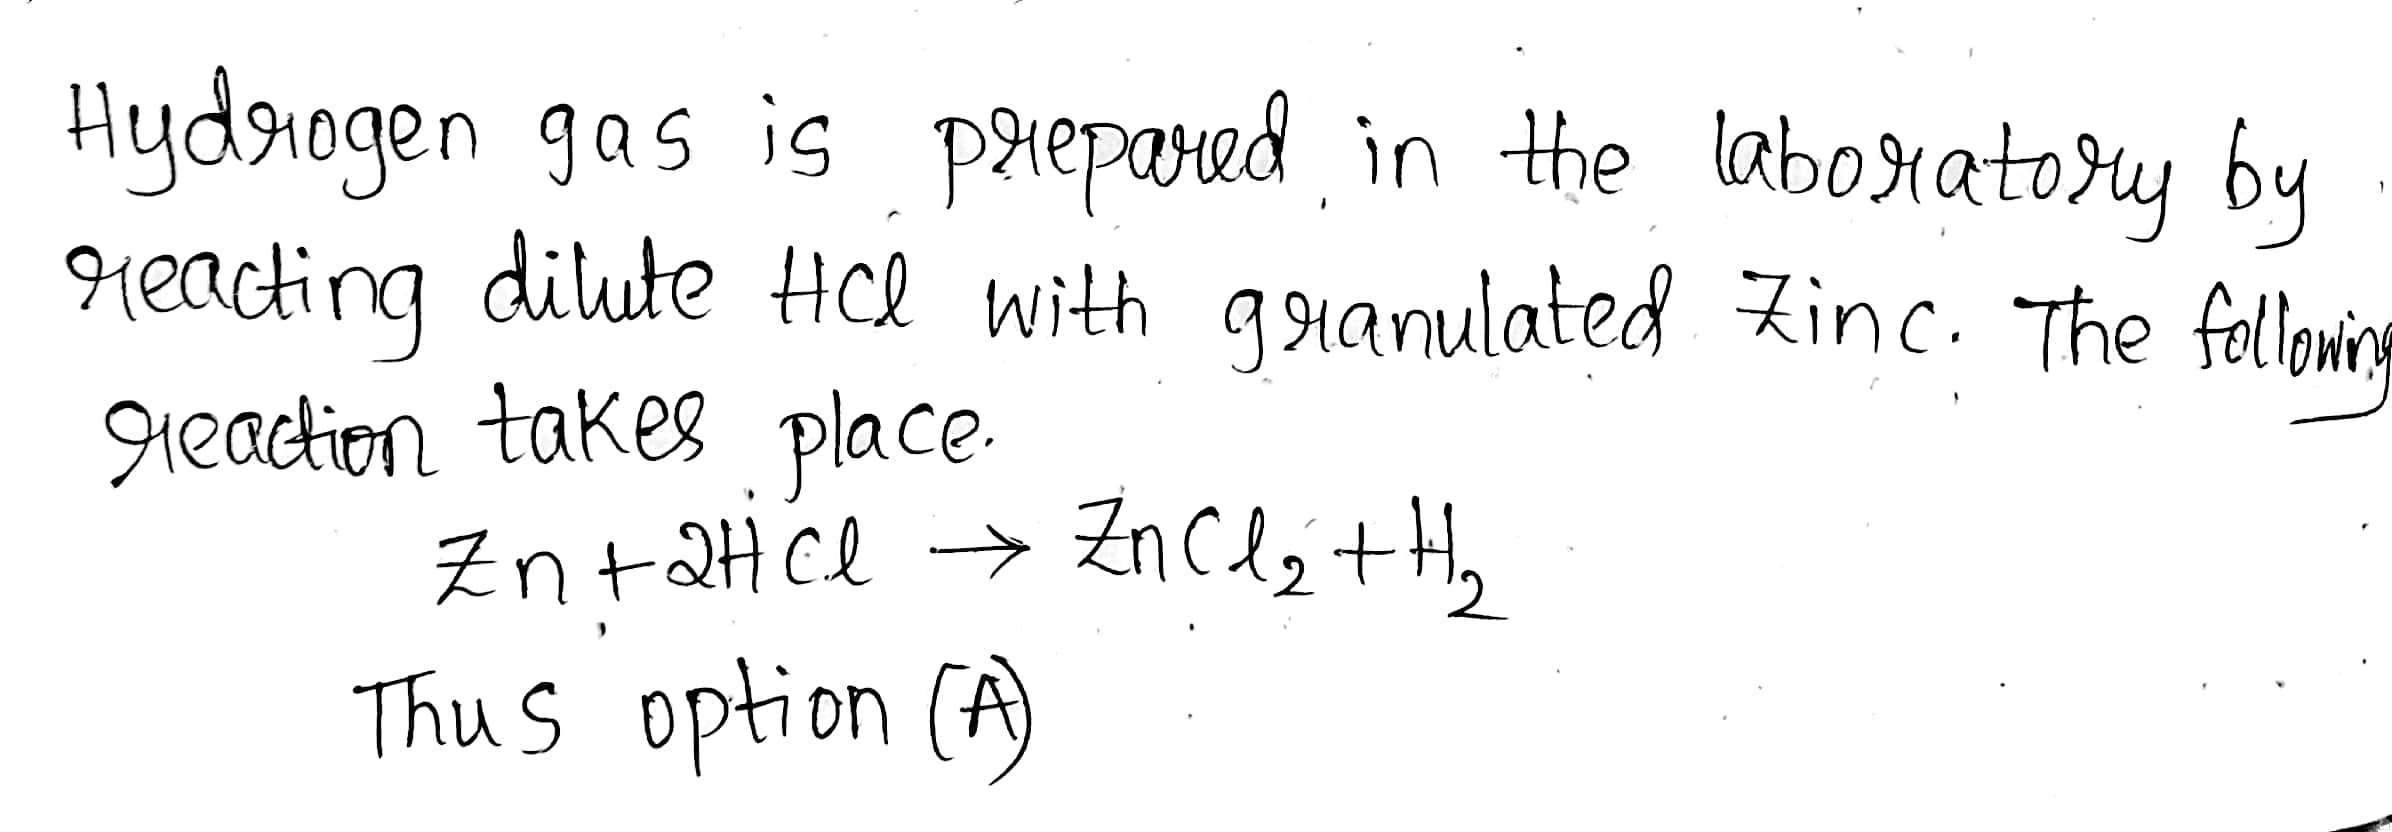 Hydrogen gas is prepared in the laboratory by
reacting dilute HCl with granulated Zinc. The following
reaction takes place.
Zn + 2HCl → ZnCl₂ + H₂
Thus option (A)